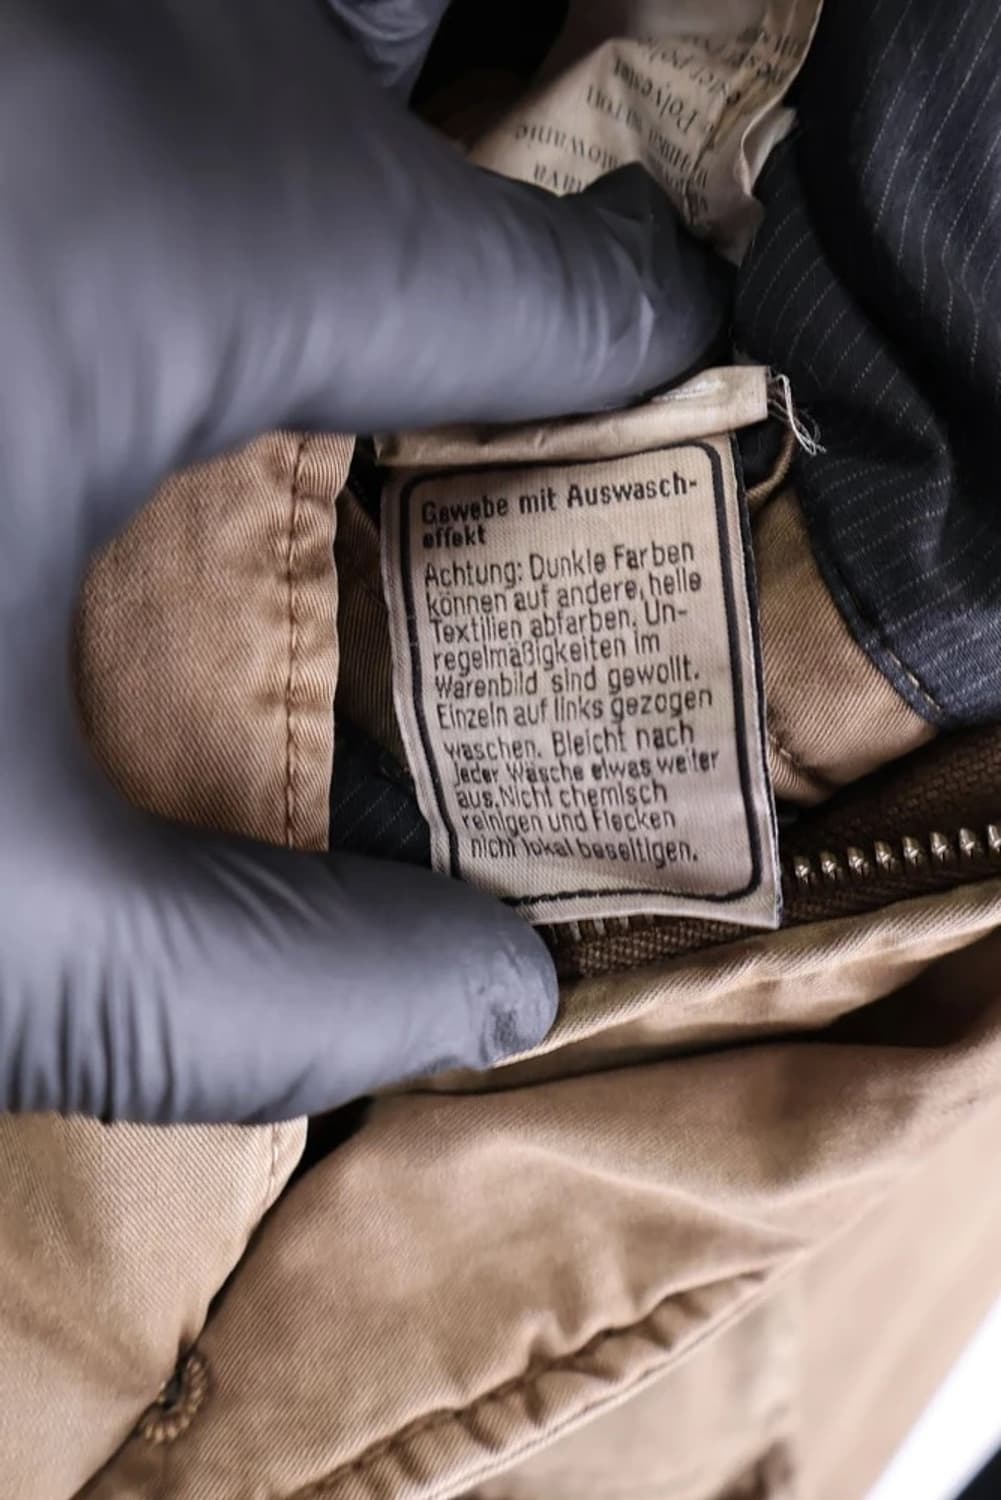 Gewebe mit Auswasch-
effekt
Achtung: Dunkle Farben
können auf andere, helle
Textilien abfarben. Un-
regelmäßigkeiten im
Warenbild sind gewollt.
Einzeln auf links gezogen
waschen. Bleicht nach
jeder Wäsche etwas weiter
aus. Nicht chemisch
reinigen und Flecken
nicht lokal beseitigen.